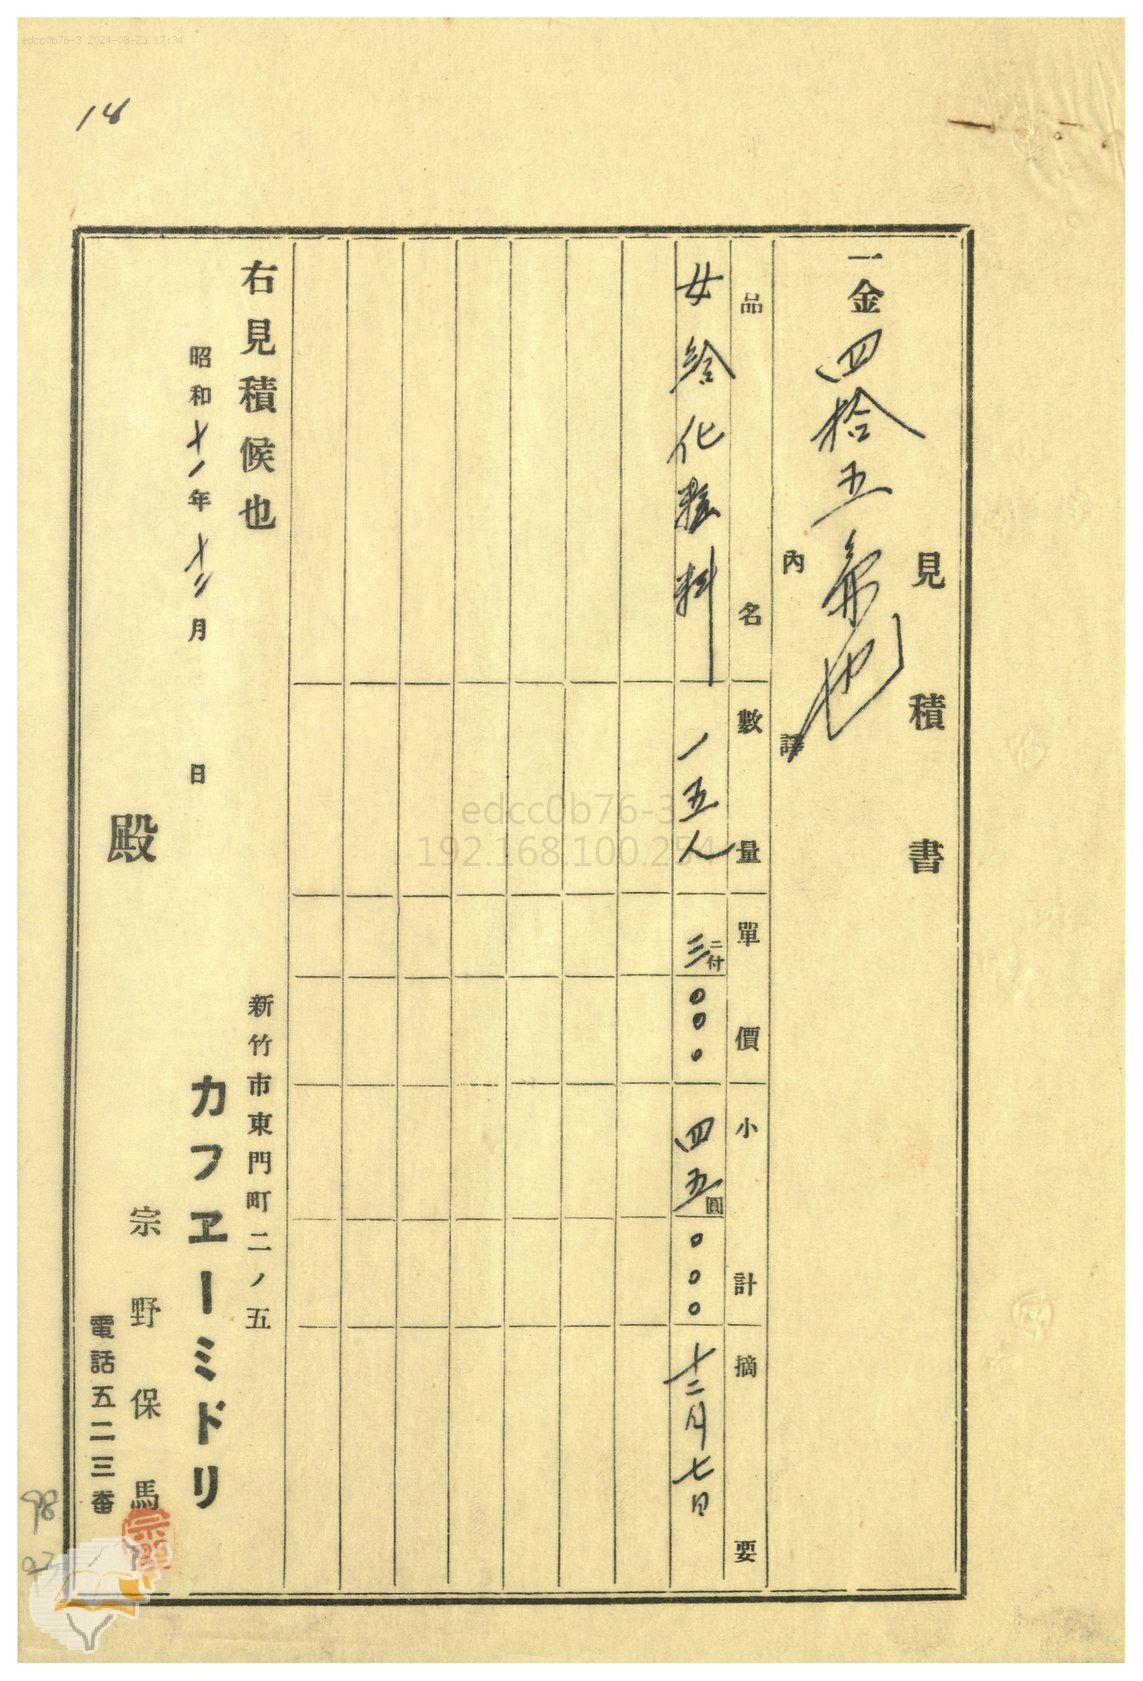 edcc0b76-3 2024-08-23 17:34
18
見積書
一金四拾五弗也
內譯
品名 數量 單價 小計 摘要
女給化粧料 一五人 三二付000 四五圓000 十二月七日
右見積候也
昭和十一年十二月 日
新竹市東門町二ノ五
カフヱーミドリ
宗野保馬
電話五二三番
殿
edcc0b76-3
192.168.100.254